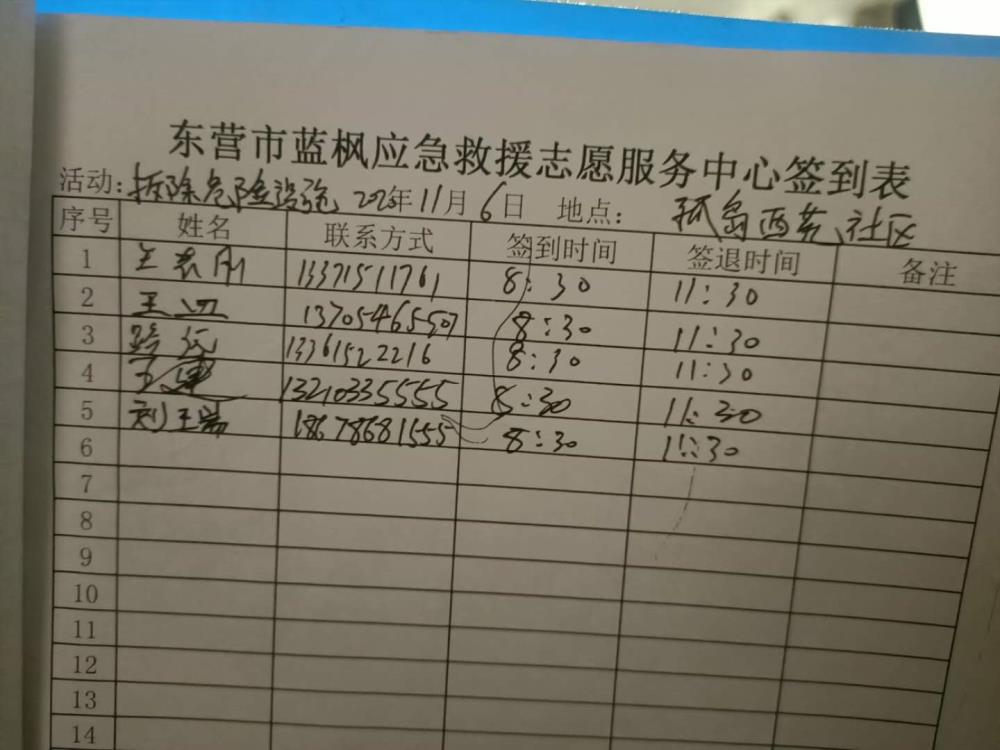 东营市蓝枫应急救援志愿服务中心签到表
活动：拆除危险设施 2023年11月6日 地点：孤岛西苑社区
序号 姓名 联系方式 签到时间 签退时间 备注
1 13371511761 8:30 11:30
2 王 13705465507 8:30 11:30
3 13361522216 8:30 11:30
4 13210335555 8:30 11:30
5 刘玉岩 18678681555 8:30 11:30
6
7
8
9
10
11
12
13
14